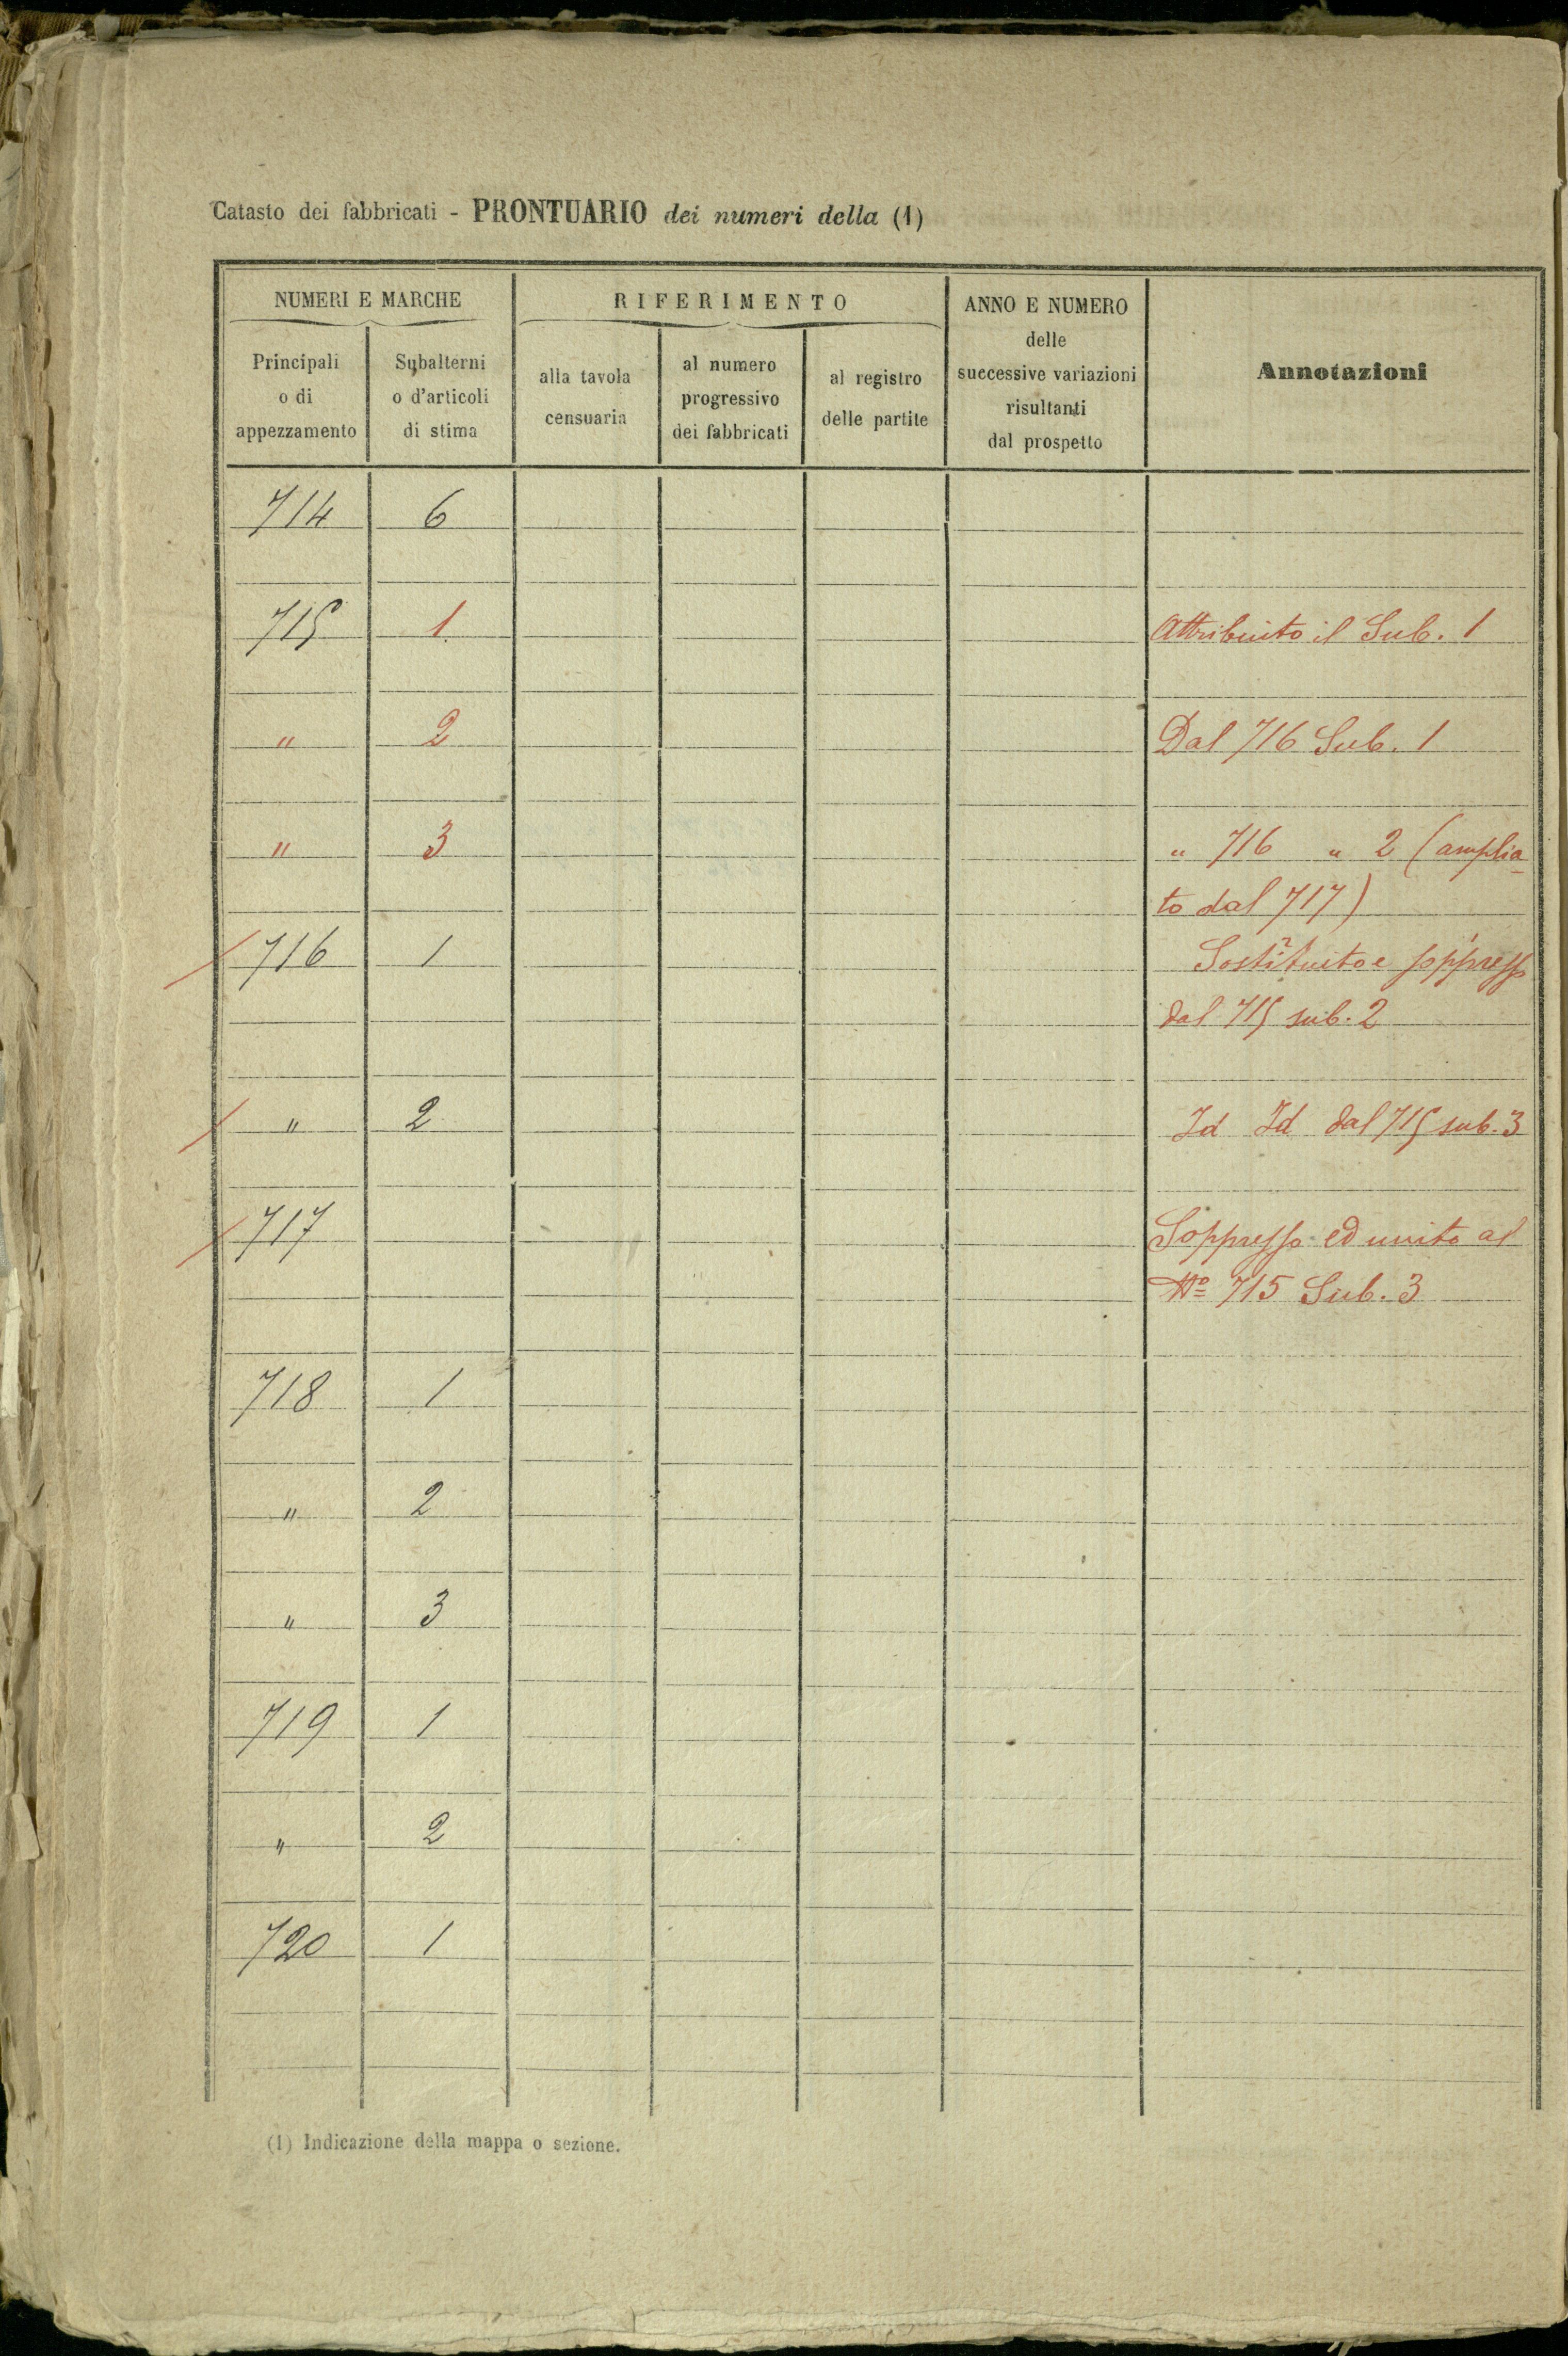 Catasto dei fabbricati - PRONTUARIO dei numeri della (1)
NUMERI E MARCHE
RIFERIMENTO
ANNO E NUMERO
delle
successive variazioni
risultanti
dal prospetto
Annotazioni
Principali
o di
appezzamento
Subalterni
o d'articoli
di stima
alla tavola
censuaria
al numero
progressivo
dei fabbricati
al registro
delle partite
714 6
715 1 Attribuito il Sub. 1
" 2 Dal 716 Sub. 1
" 3 " 716 " 2 (amplia-
to dal 717)
716 1 Sostituito e soppresso
dal 715 sub. 2
" 2 Id Id dal 715 sub. 3
717 Soppresso ed unito al
Nº 715 Sub. 3
718 1
" 2
" 3
719 1
" 2
720 1
(1) Indicazione della mappa o sezione.